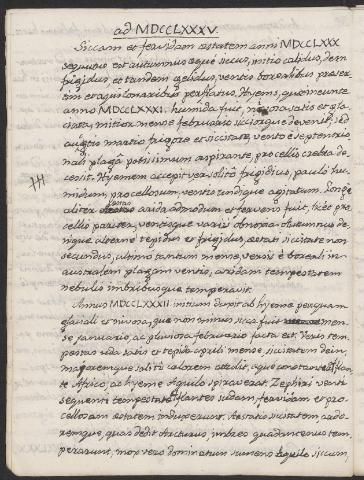 ad MDCCLXXXV.
Siccam et fervidam aestatem anni MDCCLXXX
sequutus est autumnus aeque siccus, initio calidus, dein
frigidus et tandem gelidus, ventis borealibus praeser
tim et aquilonaribus perflatus. Hyems, quae ineunte
anno MDCCLXXXI. humida fuit, nivosa satis et gla
ciata, mitior mense februario siccior que devenit, sed
auctis martio frigore et siccitate, vento e septentrio
nali plaga potissimum aspirante, procellis crebra de
cessit. Hyemem accepit ver solito frigidius, paulo hu
midum, procellosum, ventis undique agitatum. Longe
aliter aestas arida admodum et fervens fuit, licet pro
cellis pariter, ventisque variis obnoxia. Autumnus de
nique alterne tepidus et frigidus, aestati siccitate non
secundus, ultimo tantum mense, versis e boreali in
australem plagam ventis, aridam tempestatem
nebulis imbribusque temperavit.
Annus MDCCLXXXII. initium cepit ab hyeme perquam
glaciali et nivosa, quae non minus sicca fuit men
se januario, ac pluviosa februario facta est. Veris tem
pestas uda satis et tepida aprili mense, siccitatem dein,
majoremque solito calorem attulit, aeque constanter flan
te Africo, ac hyeme Aquilo spiraverat. Zephiri venti
sequenti tempestate flantes sudam, fervidam et pro
cellosam aestatem induxerunt. Aestatis siccitatem, ardo
remque, quos dedit Arcturus, imbres quadantenus tem
perarunt, mox vero dominatum sumens Aquilo siccum,